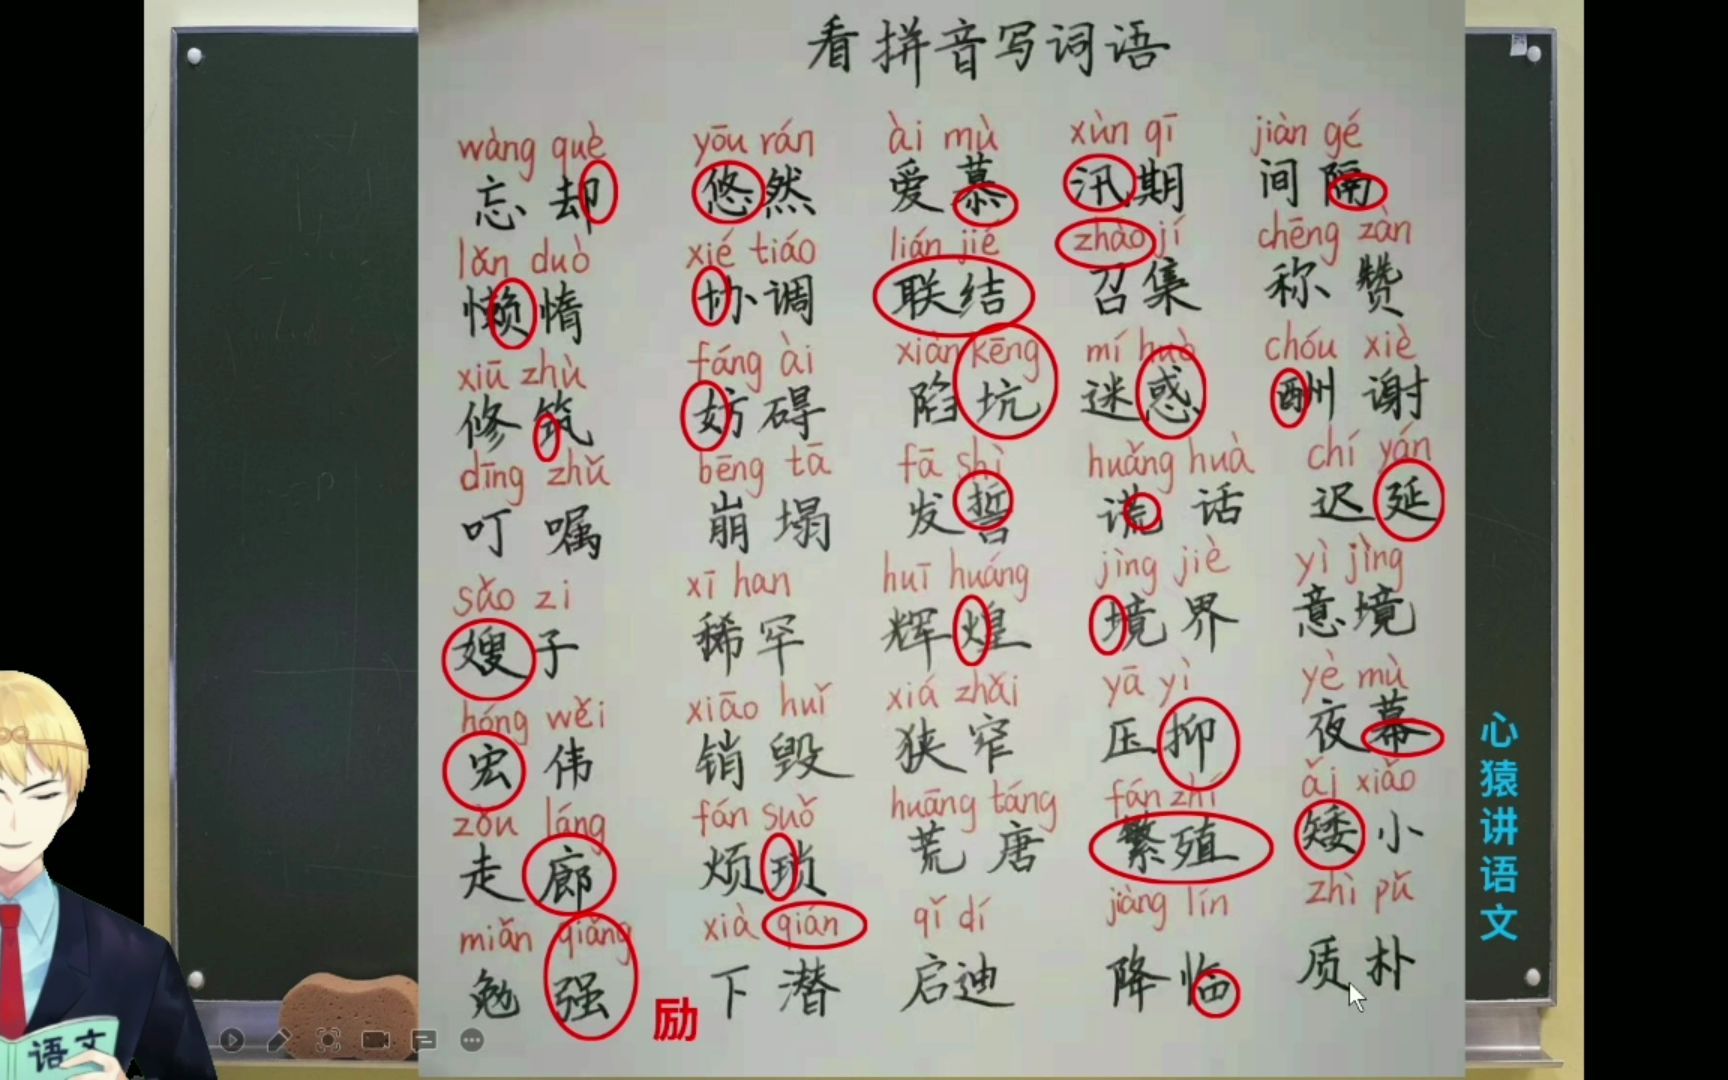 看拼音写词语
wàng què yōu rán ài mù xùn qī jiàn gé
忘却 悠然 爱慕 汛期 间隔
lǎn duò xié tiáo lián jié zhào jí chēng zàn
懒惰 协调 联结 召集 称赞
xiū zhù fáng ài xiàn kēng mí huò chóu xiè
修筑 妨碍 陷坑 迷惑 酬谢
dīng zhǔ bēng tā fā shì huǎng huà chí yán
叮嘱 崩塌 发誓 谎话 迟延
sǎo zi xī han huī huáng jìng jiè yì jìng
嫂子 稀罕 辉煌 境界 意境
hóng wěi xiāo huǐ xiá zhǎi yā yì yè mù
宏伟 销毁 狭窄 压抑 夜幕
zǒu láng fán suǒ huāng táng fán zhí ǎi xiǎo
走廊 烦琐 荒唐 繁殖 矮小
miǎn qiǎng xià qián qǐ dí jiàng lín zhì pǔ
勉强 下潜 启迪 降临 质朴
励
心猿讲语文
语文